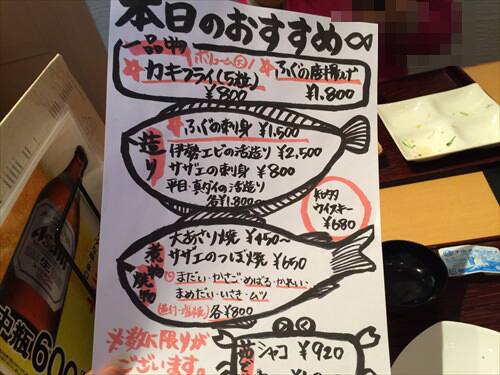 本日のおすすめ
一品物
ボリューム大!
カキフライ(5粒)
¥800
ふぐの唐揚げ
¥1.800
造り
ふぐの刺身 ¥1,500
伊勢エビの活造り ¥2,500
サザエの刺身 ¥800
平目・真ダイの活造り
各¥1,800~
知多
ウイスキー
¥680
煮物
焼物
大あさり焼 ¥450~
サザエのつぼ焼 ¥650
まだい・かさご・めばる・かれい・
まめだい・いさき・ムツ
各¥800
数に限りが
ございます。
シャコ ¥920
Asahi
中瓶600